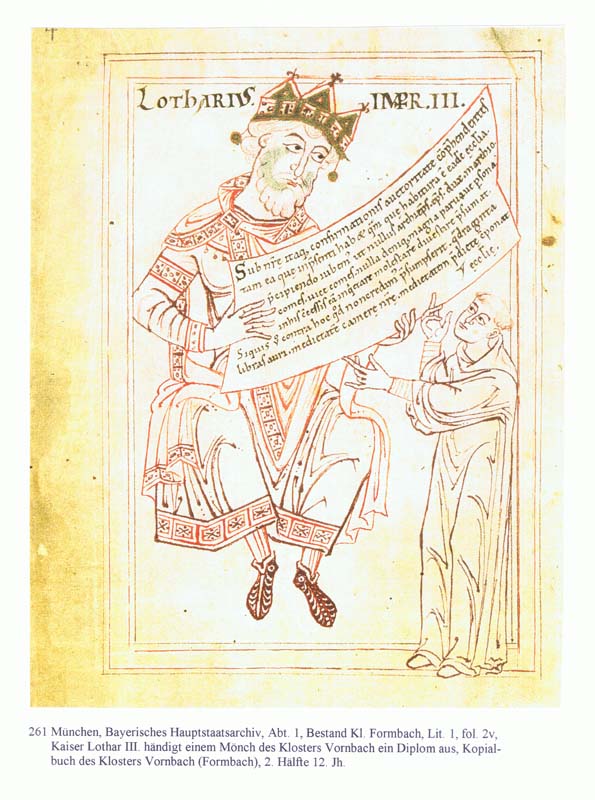 LOTHARIVS. IMPR.III.
Sub nr̄e itaq; confirmationis auctoritate cōp̄hendentes
tam ea que inp̄senti hab& q̄m que habitura ē eadē ecc̄lia.
p̄cipiendo iubem' ut nullus archiep̄s. ep̄s. dux. marchio.
comes. uicecomes. nulla deniq; magna paruaue p̄sona
molestare diuestire p̄sumat
Siquis contra hoc q̄d non credim' p̄sumpserit. q̄draginta
libras auri. medietatē camere nr̄e. medietatem p̄dicte cōponat
ecclīe.
261 München, Bayerisches Hauptstaatsarchiv, Abt. 1, Bestand Kl. Formbach, Lit. 1, fol. 2v,
Kaiser Lothar III. händigt einem Mönch des Klosters Vornbach ein Diplom aus, Kopial-
buch des Klosters Vornbach (Formbach), 2. Hälfte 12. Jh.